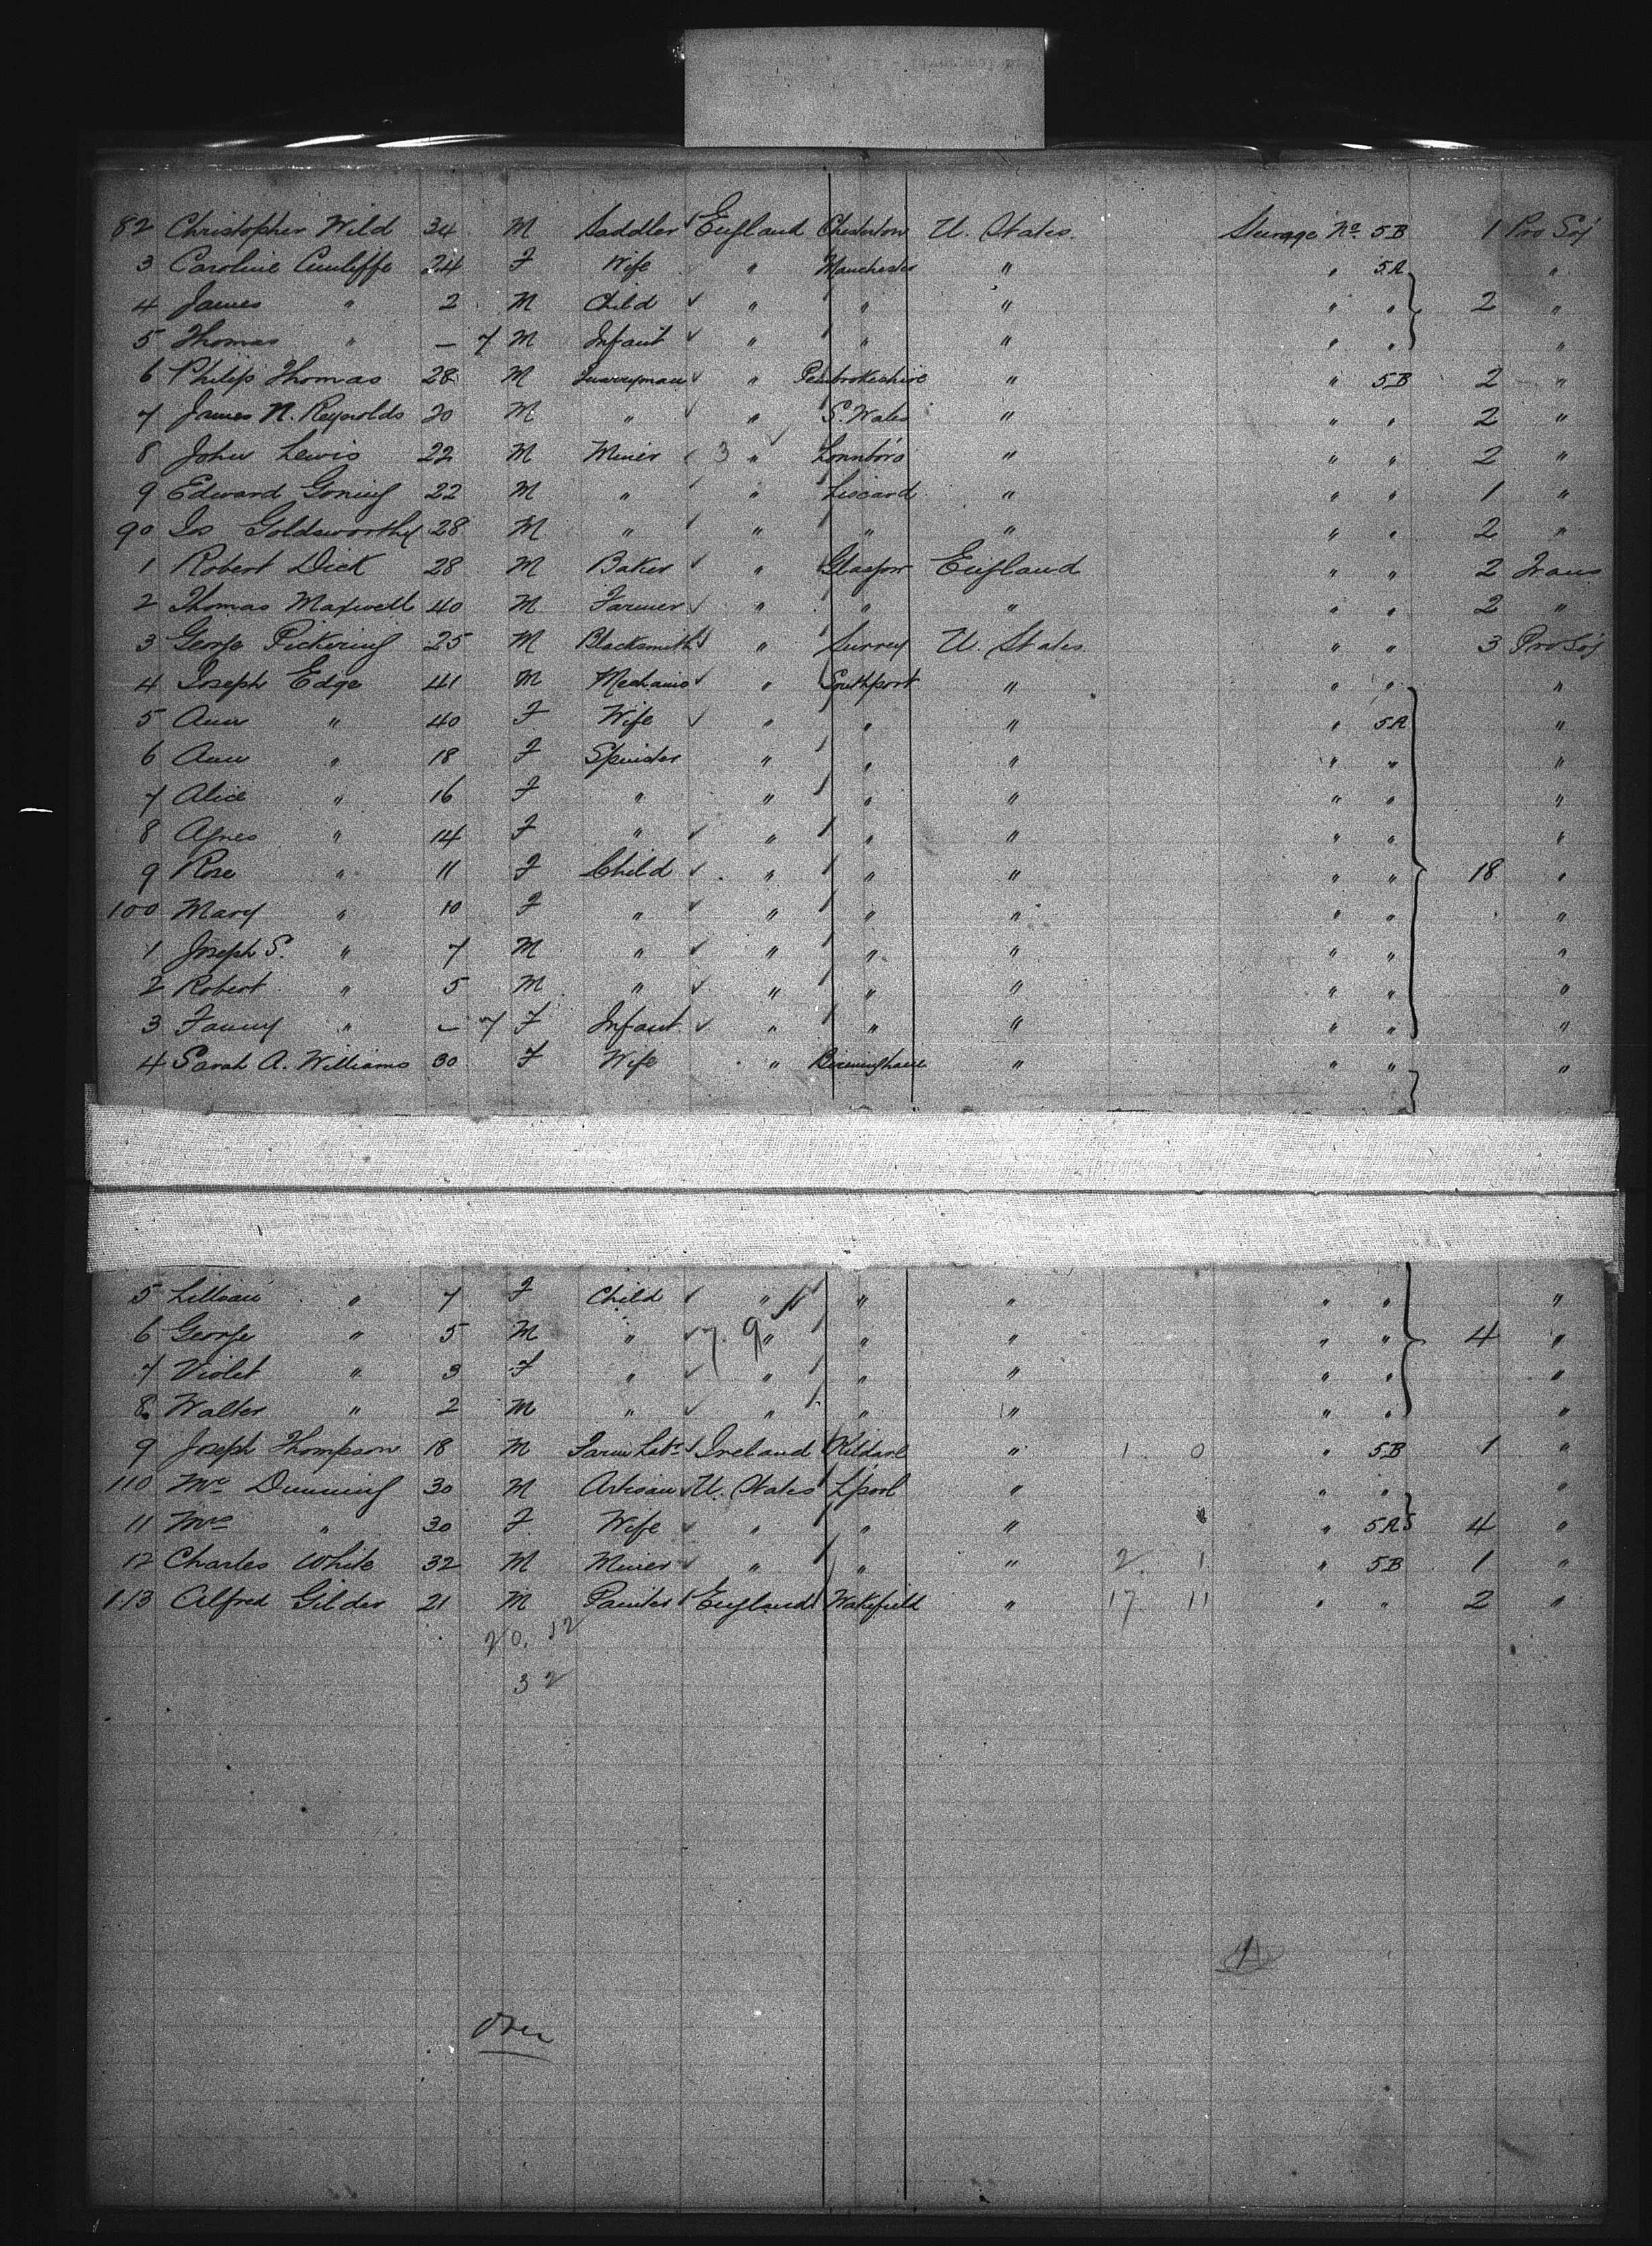 82 Christopher Wild 34 M Saddler England Chesterton U. States. Steerage No. 5B 1 Pro Soj
3 Caroline Cunliffe 24 F Wife " Manchester " " 5A "
4 James " 2 M Child " " " " " 2 "
5 Thomas " — 7 M Infant " " " " " "
6 Philip Thomas 28 M Quarryman " Pembrokeshire " " 5B 2 "
7 James N. Reynolds 20 M " " S. Wales " " " 2 "
8 John Lewis 22 M Miner 3 " " " " 2 "
9 Edward 22 M " " Liscard " " " 1 "
90 Jos Goldsworthy 28 M " " " " " " 2 "
1 Robert Dick 28 M Baker " Glasgow England " " 2 Trans
2 Thomas Maxwell 40 M Farmer " " " " " 2 "
3 George Pickering 25 M Blacksmith " Surrey U. States " " 3 Pro Soj
4 Joseph Edge 41 M Mechanic " Southport " " " "
5 Ann " 40 F Wife " " " " 5A "
6 Ann " 18 F Spinster " " " " " "
7 Alice " 16 F " " " " " " "
8 Agnes " 14 F " " " " " " "
9 Rose " 11 F Child " " " " " 18 "
100 Mary " 10 F " " " " " " "
1 Joseph S. " 7 M " " " " " " "
2 Robert " 5 M " " " " " " "
3 Fanny " — 7 F Infant " " " " " "
4 Sarah A. Williams 30 F Wife " Birmingham " " " "
5 Lillian " 7 F Child " " " " " "
6 George " 5 M " 7. 9 " " " " " 4 "
7 Violet " 3 F " " " " " " "
8 Walter " 2 M " " " " " " "
9 Joseph Thompson 18 M Farm Labr Ireland Kildare " 1 0 " 5B 1 "
110 Mr Dunning 30 M Artisan U. States L'pool " " " "
11 Mrs " 30 F Wife " " " " 5A 4 "
12 Charles White 32 M Miner " " " 2 1 " 5B 1 "
113 Alfred Gilder 21 M Painter England Wakefield " 17 11 " " 2 "
20. 12
32
over